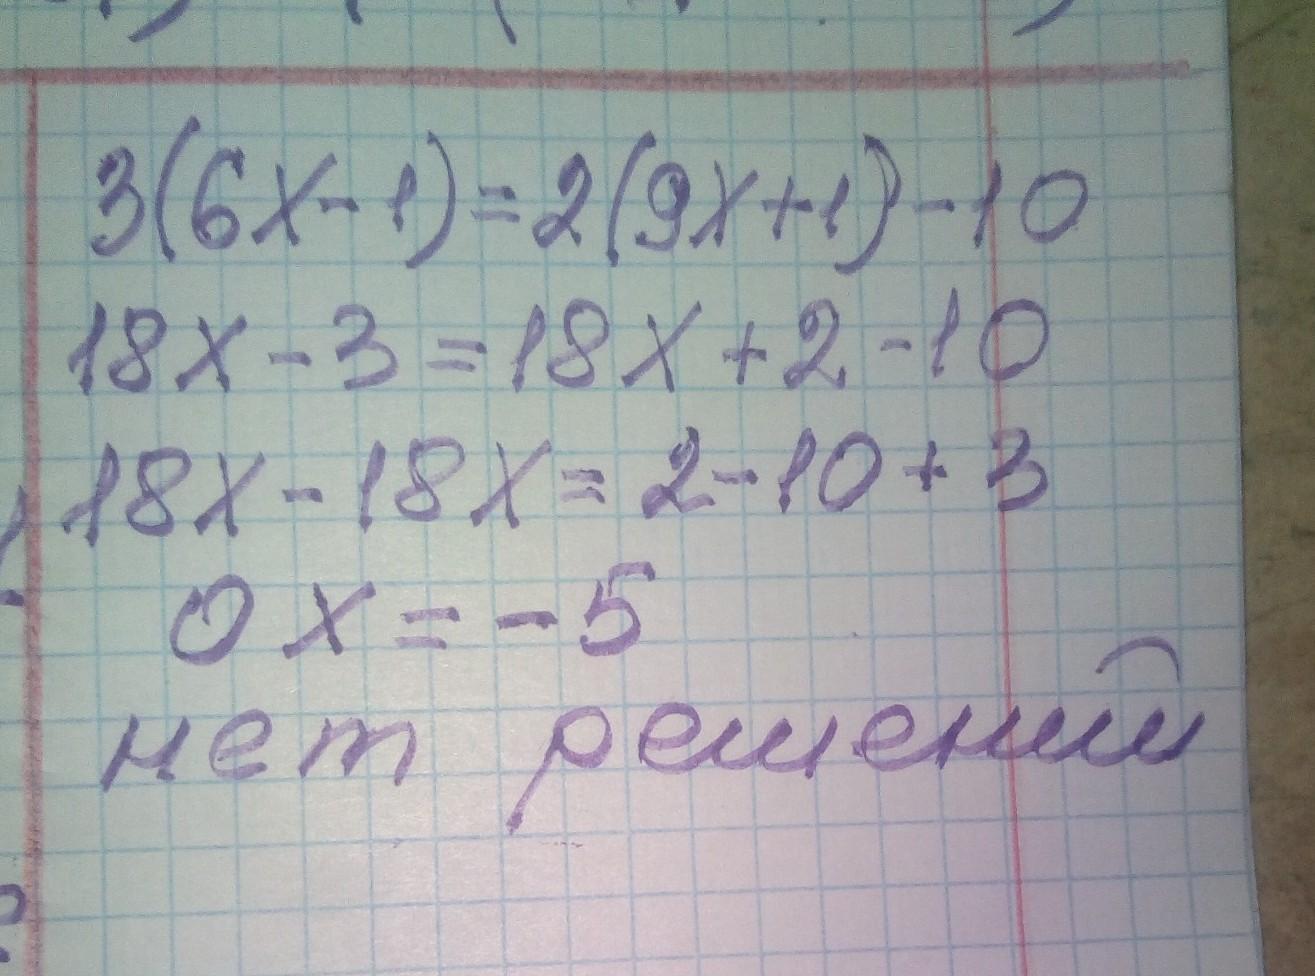 3(6x-1)=2(9x+1)-10
18x-3=18x+2-10
18x-18x=2-10+3
0x=-5
нет решений